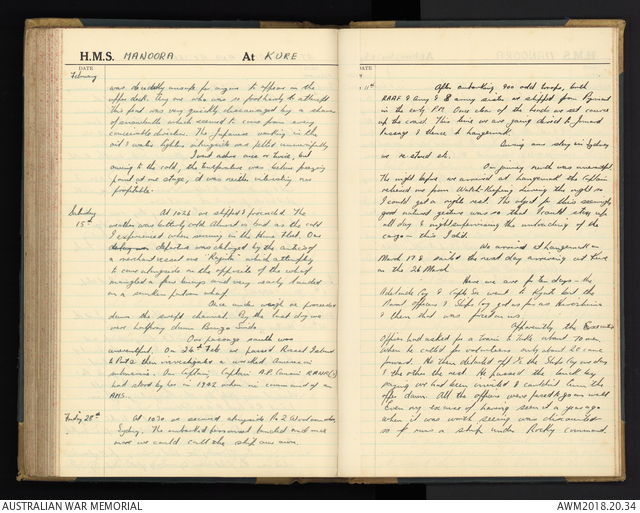 H.M.S. MANOORA At KURE
DATE
February
was decidedly unsafe for anyone to appear in the
upper deck. Any one who was so foolhardy to attempt
this feat was very quickly discouraged by a shower
of snowballs which seemed to come from every
conceivable direction. The Japanese working in the
and water lighters alongside was pelted unmercifully
I went ashore once or twice, but
owing to the cold, the temperature was below freezing
point at one stage, it was neither interesting nor
profitable.
Saturday
15th
At 1026 we slipped & proceeded. The
weather was bitterly cold. Almost as bad as the cold
I experienced when serving in the Home Fleet. Our
departure was delayed by the antics of
a merchant vessel
to come alongside on the opposite of the wharf
mangled a few and very nearly landed
on a sunken
Once under weigh we proceeded
down the swept channel. By the last dog we
were halfway down Bungo Suido
Our passage south was
uneventful. On 26th Feb we passed Rossel Island
to Port & then investigated a wrecked American
submarine. Our Captain, Captain A.P. Cousin RANR(S)
had stood by her in 1942 when in command of an
AMS.
Friday 28th
At 1030 we secured alongside No 2 Woolloomooloo,
Sydney. The embarked personnel landed and once
more we could call the ship our own.
DATE
11th
After embarking 900 odd troops, both
RAAF & Army & 8 army sisters we slipped from Pyrmont
in the early PM. Once clear of the heads we set course
up the coast. This time we are going direct to Jomard
passage & thence to
During our stay in Sydney
we restored etc.
Our journey north was uneventful.
The night before we arrived at the Captain
relieved me from Watch-Keeping during the night so
I could get a night's rest. The object for this seemingly
good natured gesture was so that I could stay up
all day & night supervising the unloading of the
cargo - this I did.
We arrived at
March 17th & sailed the next day arriving at Kure
on the 26 March
Here we are for ten days - the
Adelaide Coy & went to Kyoto but the
Naval officers & Ships Coy got as far as Hiroshima
& then that was
Apparently the Executive
Officer had asked for a train to take about 70 men,
when he called for volunteers only about 20 came
forward. He then detailed off 1/2 the Ships Coy one day
& the other the rest. He passed the buck by
saying we had been invited & couldn't turn the
offer down. All the officers were forced to go as well
Even my excuse of having seen it a year ago
when it was worth seeing was
so if runs a ship under Rocky command.
AUSTRALIAN WAR MEMORIAL
AWM2018.20.34